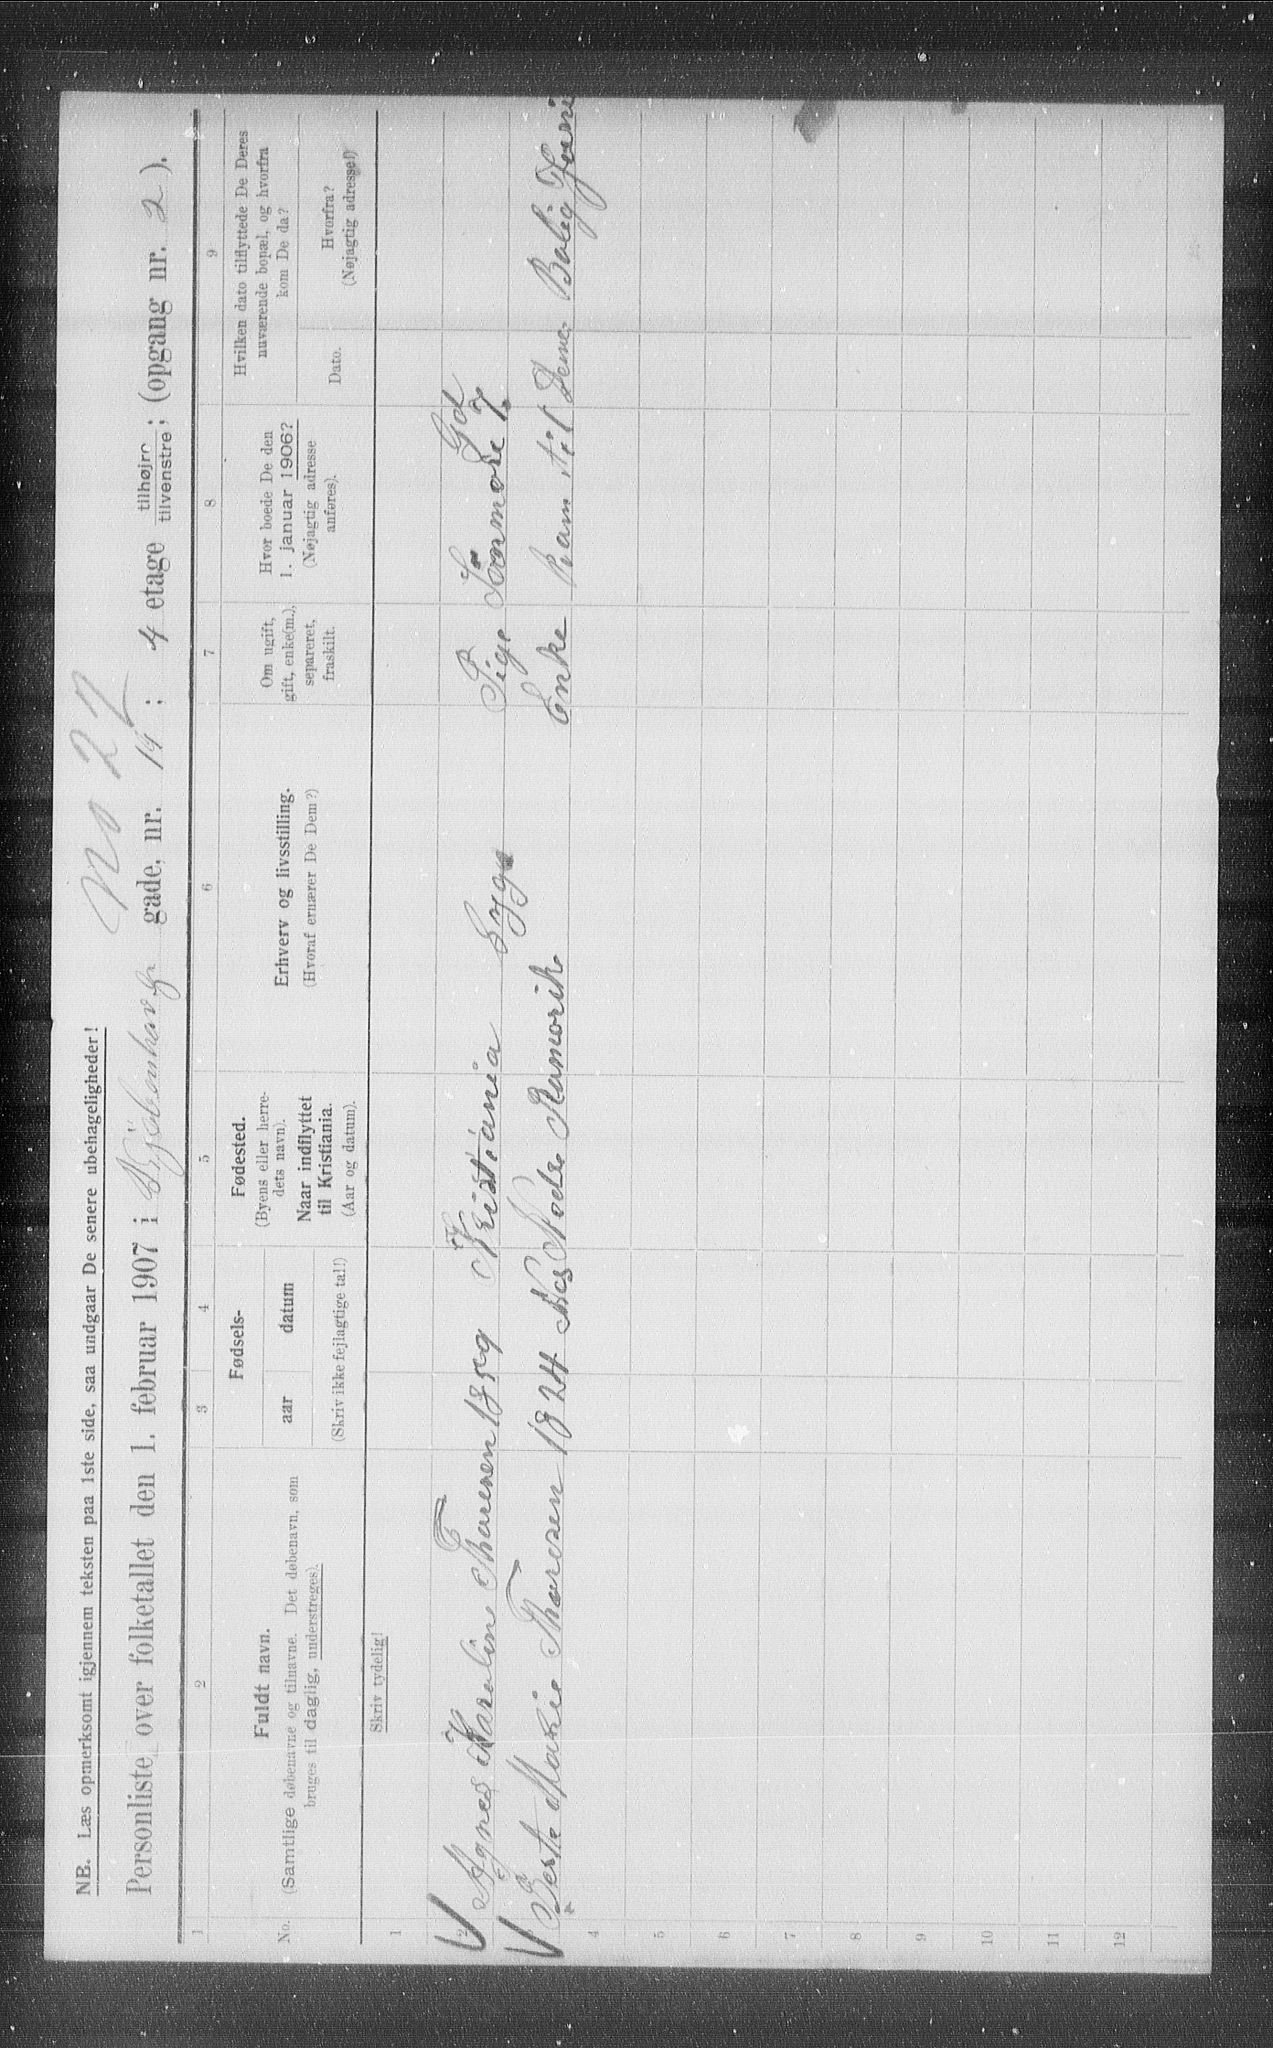 NB. Læs opmerksomt igjennem teksten paa 1ste side, saa undgaar De senere ubehageligheder!
No 27
Personliste over folketallet den 1. februar 1907 i Kjøbenhav gade, nr. 14 ; 4 etage tilhøjre tilvenstre ; (opgang nr. 2 ).
1 2 3 4 5 6 7 8 9
No.
Fuldt navn.
(Samtlige døbenavne og tilnavne. Det døbenavn, som
bruges til daglig, understreges).
Fødsels-
aar datum
(Skriv ikke fejlagtige tal!)
Fødested.
(Byens eller herre-
dets navn).
Naar indflyttet
til Kristiania.
(Aar og datum).
Erhverv og livsstilling.
(Hvoraf ernærer De Dem?)
Om ugift,
gift, enke(m.),
separeret,
fraskilt.
Hvor boede De den
1. januar 1906?
(Nøjagtig adresse
anføres).
Hvilken dato tilflyttede De Deres
nuværende bopæl, og hvorfra
kom De da?
Dato.
Hvorfra?
(Nøjagtig adresse!)
Skriv tydelig!
1
2 Agnes Karolin Thoresen 1859 Kristiania Syge Pige
Berthe Marie Thoresen 1824 Nes Nedre Romerike Enke Kom til Denne Bolig
4
5
6
7
8
9
10
11
12